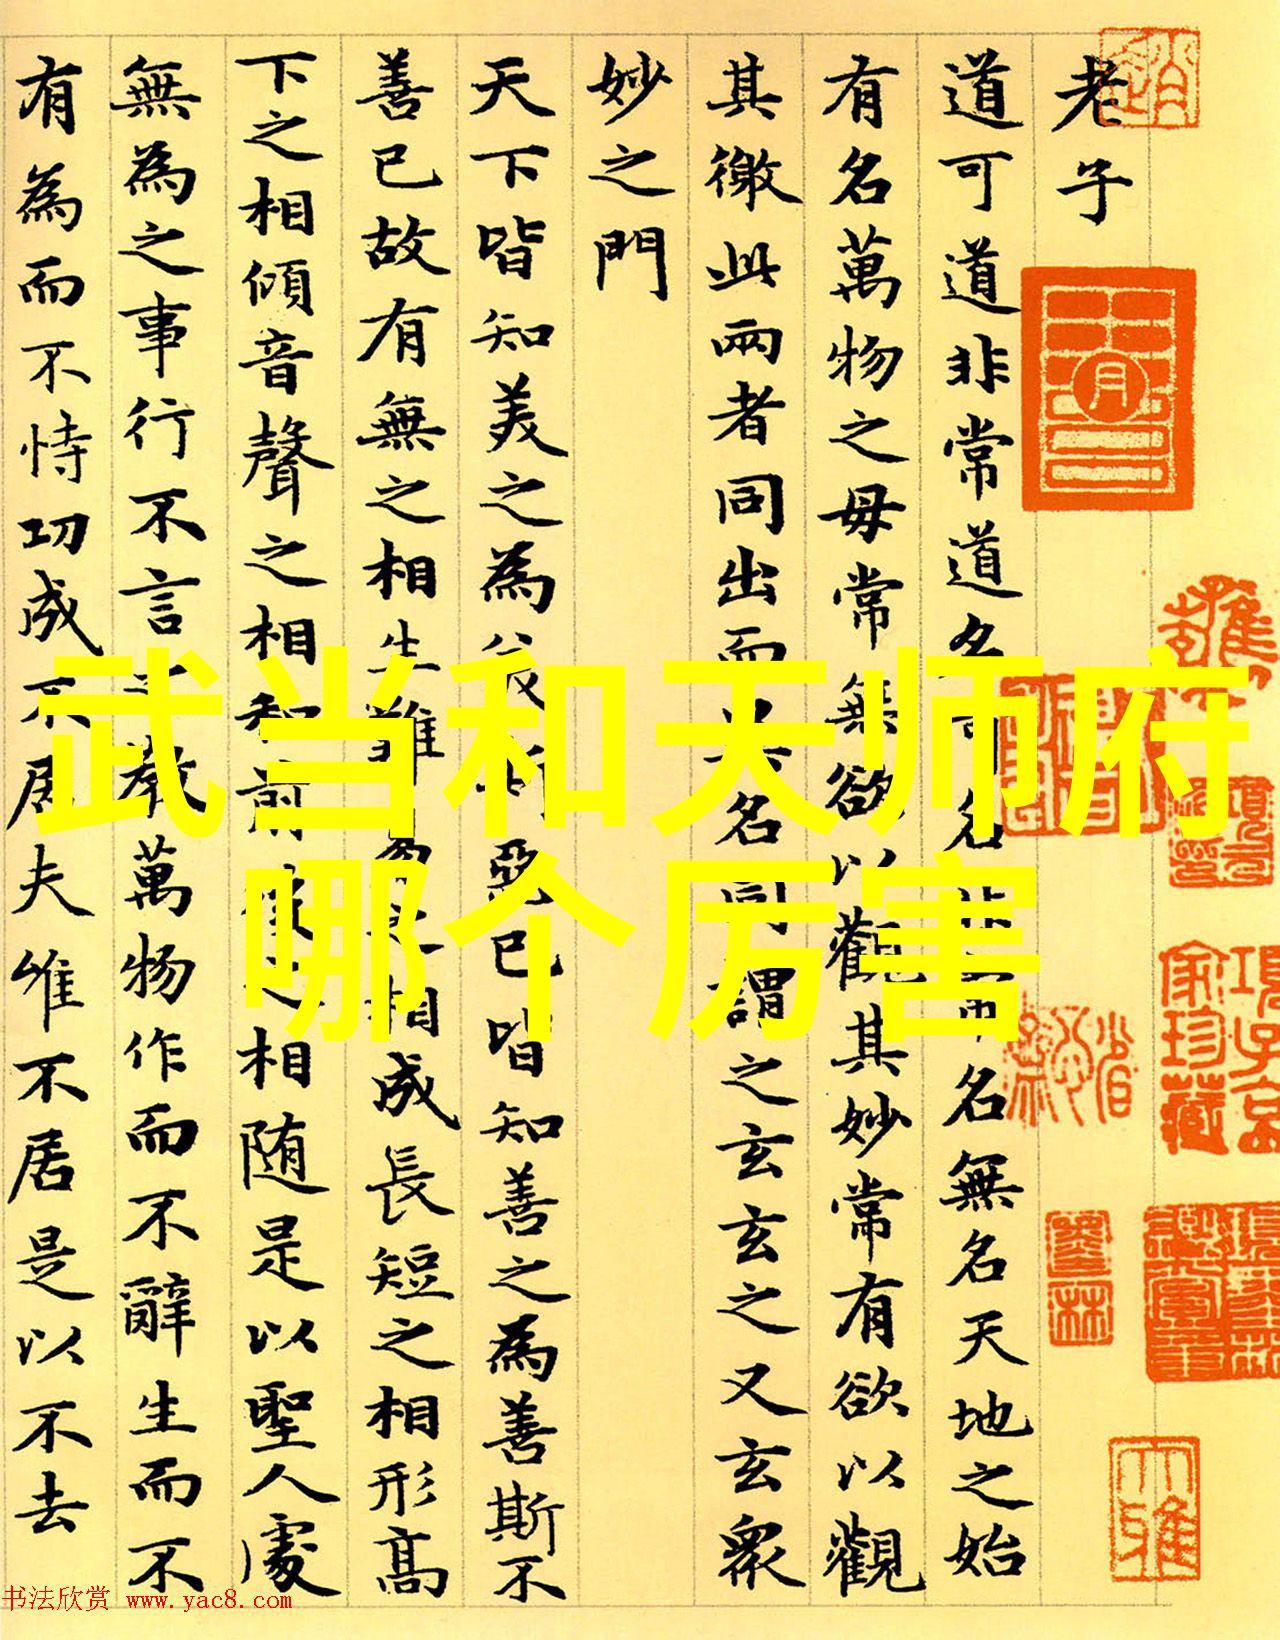 武当和天师府
哪个厉害
老子
道可道非常道名可名非常名無名天地之始
有名萬物之母常無欲以觀其妙常有欲以觀
其徼此兩者同出而異名同謂之玄玄之又玄衆
妙之門
天下皆知美之為美斯惡已皆知善之為善斯不
善已故有無之相生難易之相成長短之相形高
下之相傾音聲之相和前後之相随是以聖人處
無為之事行不言之教萬物作而不辭生而不
有為而不恃功成不居夫唯不居是以不去
項子京
家珍藏
书法欣赏 www.yac8.com